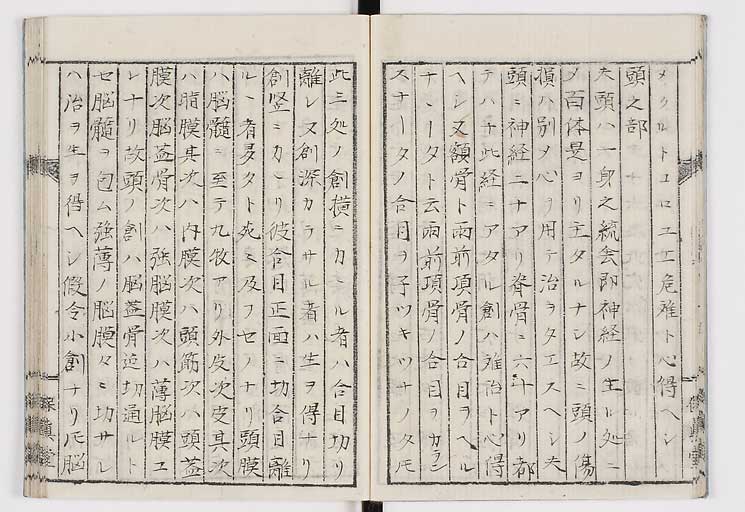 メクルトコロユエ危難ト心得ヘシ
頭之部
夫頭ハ一身之統会即神経ノ生ル処ニ
メ百体是ヨリ主タルナシ故ニ頭ノ傷
損ハ別メ心ヲ用テ治ヲタエスヘシ夫
頭ニ神経ニナアリ脊骨ニ六十アリ都
テハ十此経ニアタル創ハ難治ト心得
ヘシ又額骨ト両前項骨ノ合目ヲヘル
ナートタト云両前項骨ノ合目ヲカラン
スナータノ合目ヲ子ツキツナノタ圧
此三処ノ創横ニカヽル者ハ合目切リ
離レ又創深カラサル者ハ生ヲ得ナリ
創竪ニカヽリ彼合目正面ニ切合目離
ルヽ者多タト死ニ及フセノナリ頭膜
ハ脳髄ニ至テ九牧アリ外皮次皮其次
ハ脂膜其次ハ内膜次ハ頭筋次ハ頭蓋
膜次脳蓋骨次ハ強脳膜次ハ薄脳膜ユ
レナリ故頭ノ創ハ脳蓋骨迠切通ルト
セ脳髄ヲ包ム強薄ノ脳膜々ニ切サレ
ハ治ヲ生ヲ得ヘシ假令小創ナリ圧脳